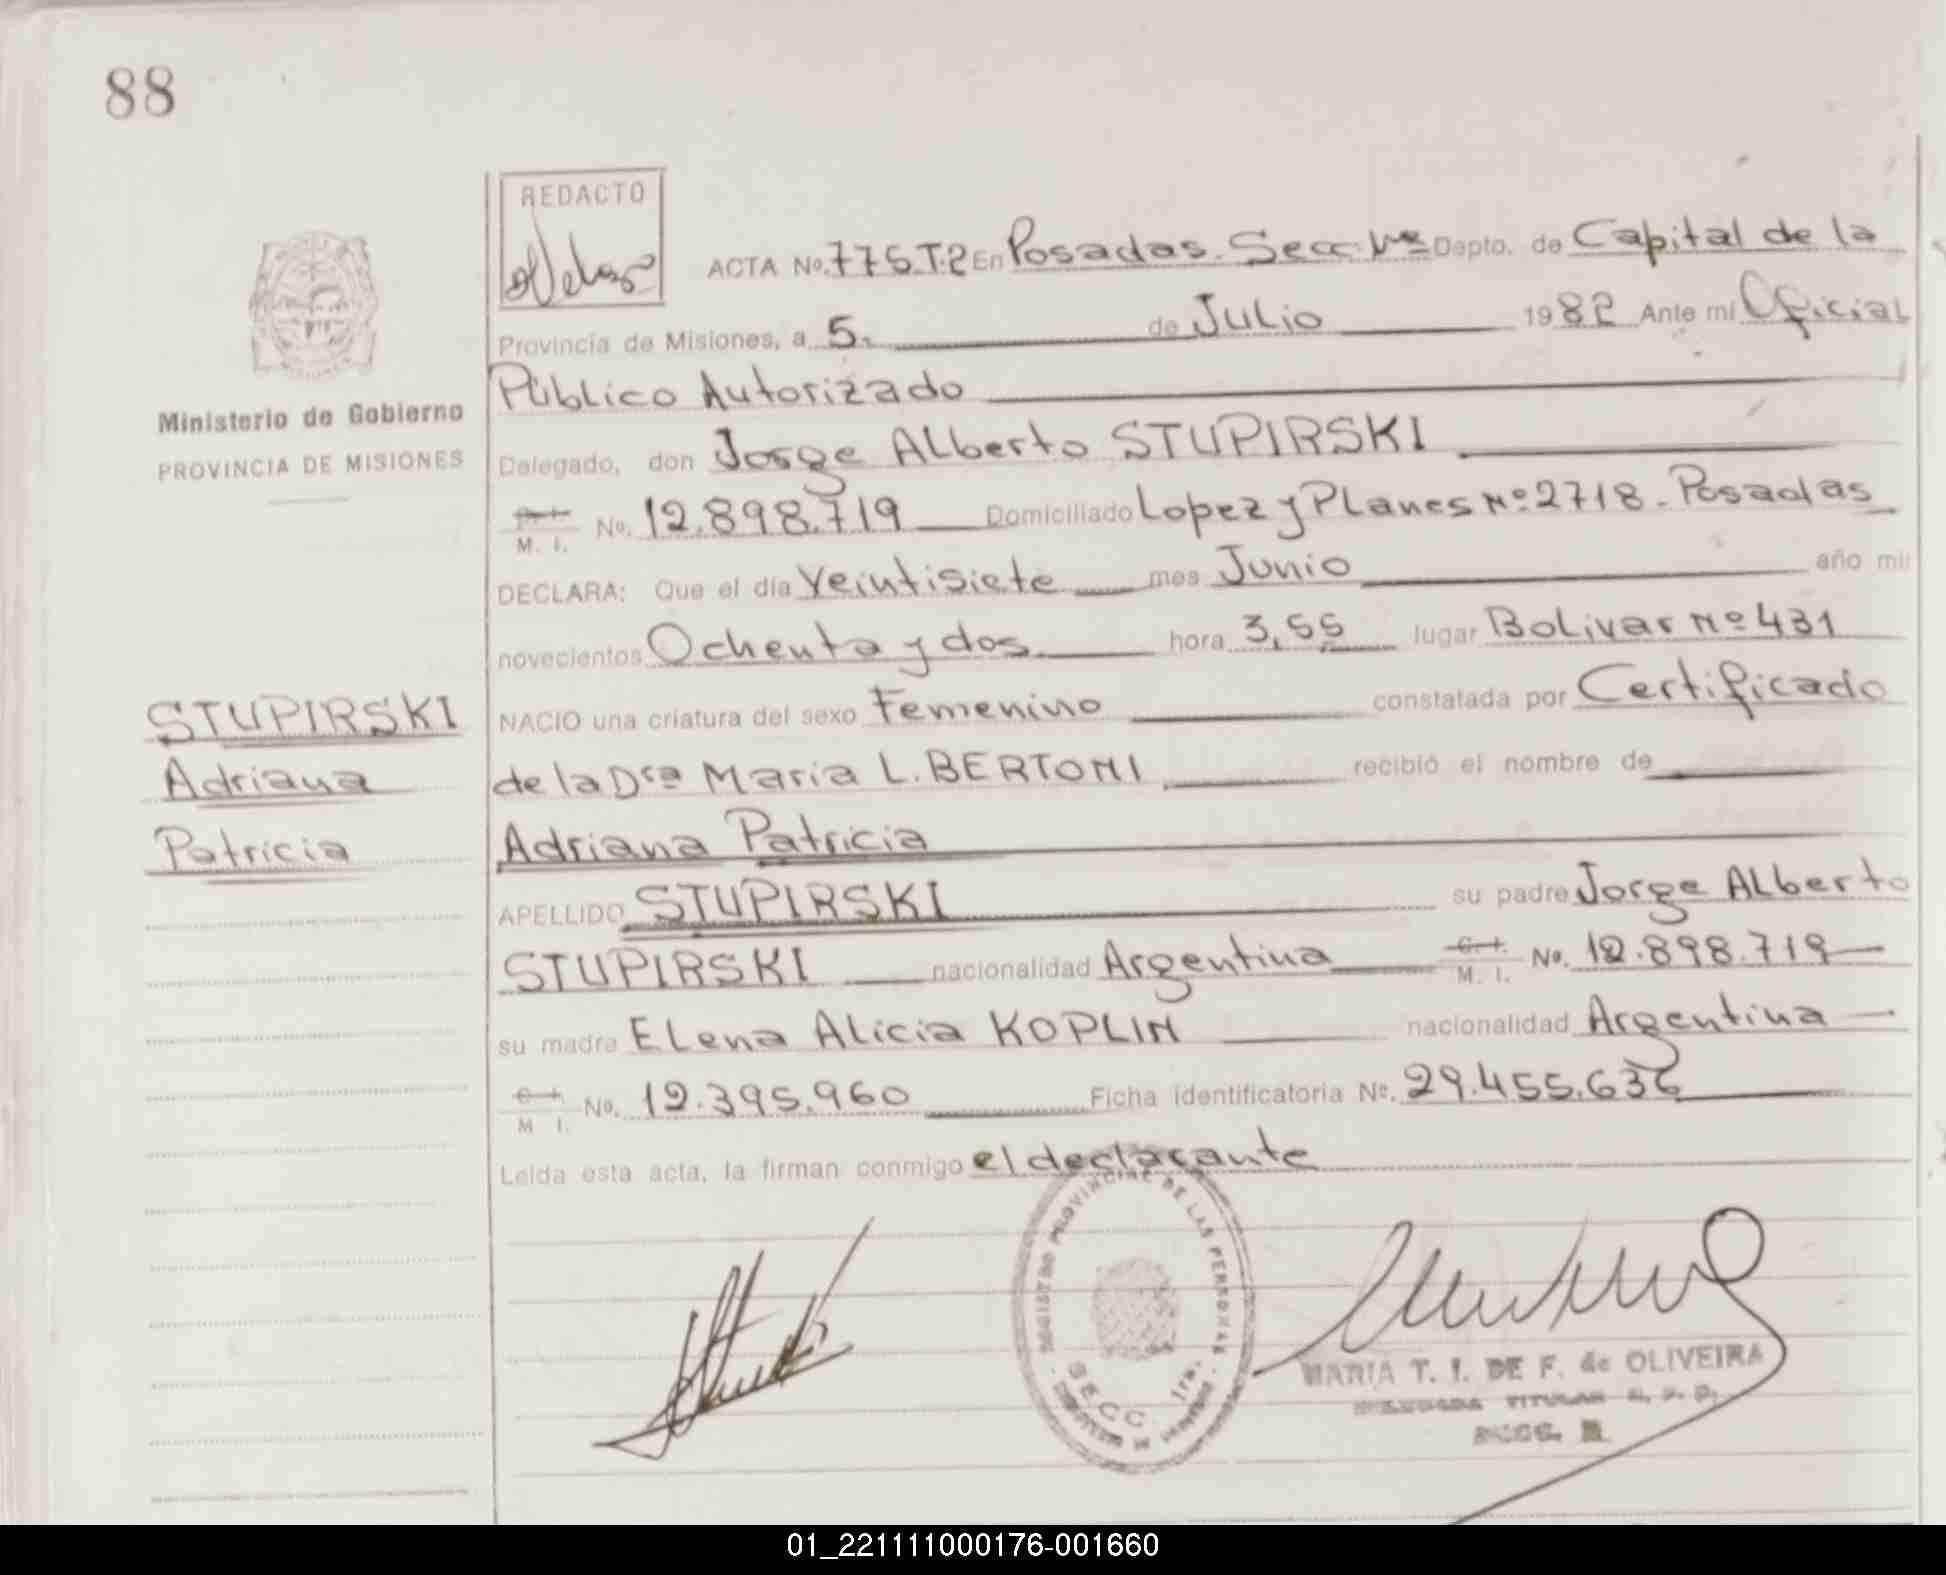 88
REDACTO
ACTA No. 775 T.2 En Posadas. Secc. 1ra Depto. de Capital de la
Provincia de Misiones, a 5. de Julio 1982 Ante mi Oficial
Público Autorizado
Ministerio de Gobierno
PROVINCIA DE MISIONES
Delegado, don Jorge Alberto STUPIRSKI
M. I. No. 12.898.719 Domiciliado Lopez y Planes Nº 2718 - Posadas
DECLARA: Que el día Veintisiete mes Junio año mil
novecientos Ochenta y dos hora 3,55 lugar Bolivar Nº 431
NACIO una criatura del sexo Femenino constatada por Certificado
de la Dra Maria L. BERTONI recibió el nombre de
Adriana Patricia
STUPIRSKI
Adriana
Patricia
APELLIDO STUPIRSKI su padre Jorge Alberto
STUPIRSKI nacionalidad Argentina C. I. M. I. No. 12.898.719
su madre Elena Alicia KOPLIN nacionalidad Argentina
C. I. M. I. No. 12.395.960 Ficha identificatoria No. 29.455.636
Leída esta acta, la firman conmigo el declarante
REGISTRO PROVINCIAL DE LAS PERSONAS
SECC. 1ra.
MARIA T. I. DE F. de OLIVEIRA
TITULAR
SECC.
01_221111000176-001660